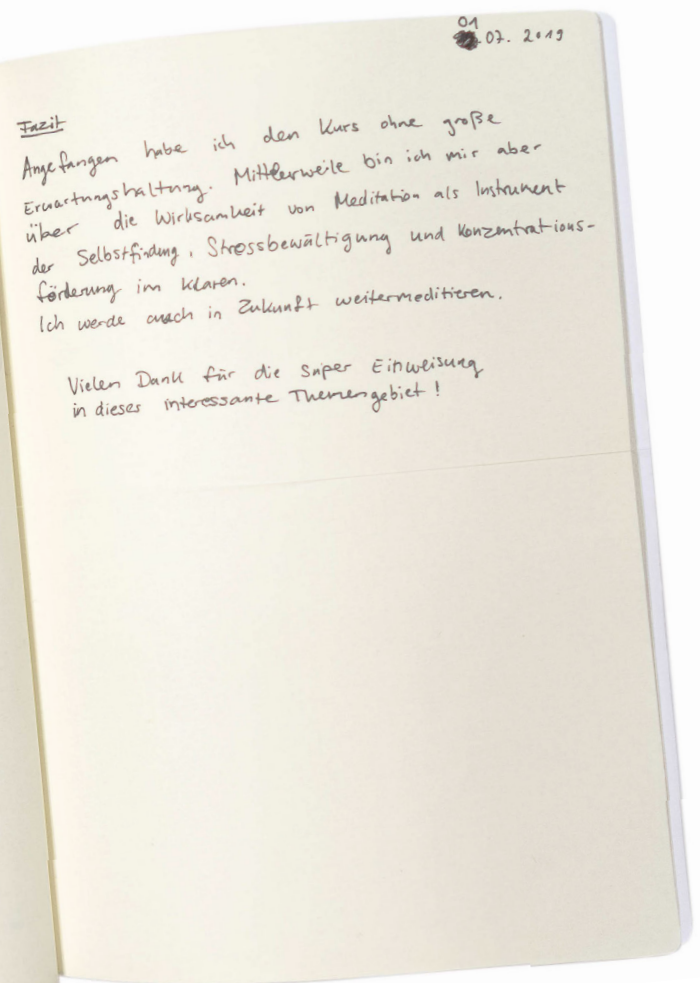 01.07.2019
Fazit
Angefangen habe ich den Kurs ohne große
Erwartungshaltung. Mittlerweile bin ich mir aber
über die Wirksamkeit von Meditation als Instrument
der Selbstfindung, Stressbewältigung und Konzentrations-
förderung im klaren.
Ich werde auch in Zukunft weitermeditieren.
Vielen Dank für die super Einweisung
in dieses interessante Themengebiet!